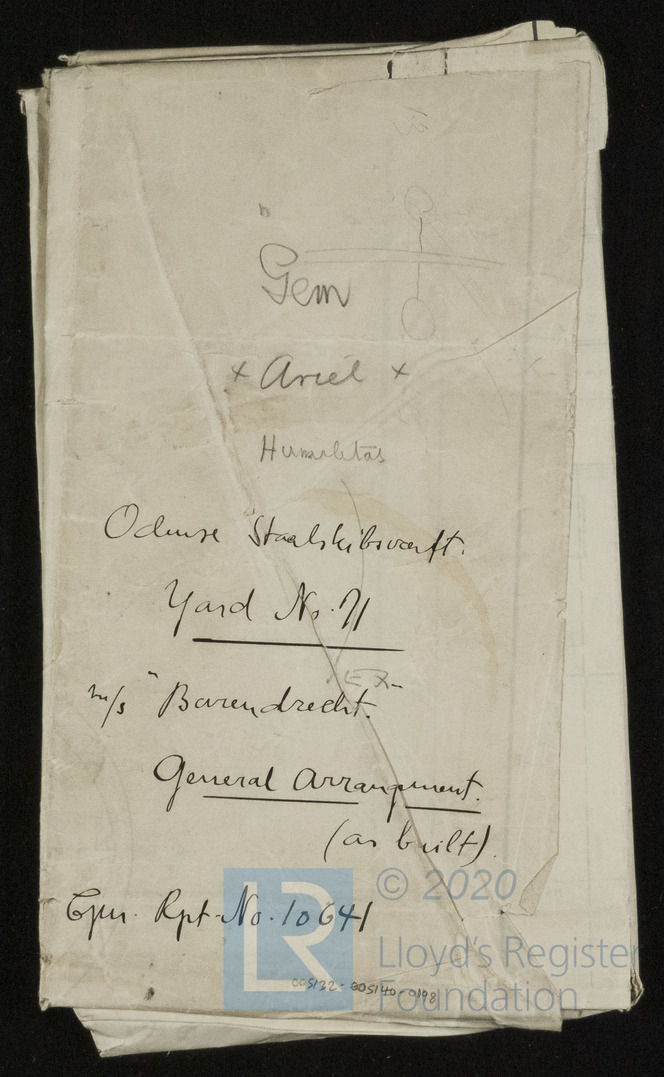 Gem
x Ariel x
Humilitas
Odense Staalskibsværft.
Yard No. 71
m/s "Barendrecht.
"EX-
General Arrangment.
(as built).
Cpn. Rpt. No. 10641
© 2020
LR
Lloyd's Register
Foundation
005132-005140-0198